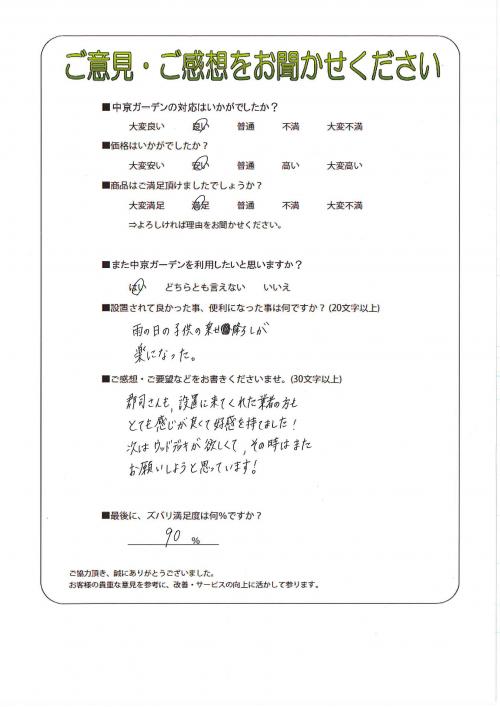 ご意見・ご感想をお聞かせください
■中京ガーデンの対応はいかがでしたか？
大変良い 良い 普通 不満 大変不満
■価格はいかがでしたか？
大変安い 安い 普通 高い 大変高い
■商品はご満足頂けましたでしょうか？
大変満足 満足 普通 不満 大変不満
⇒よろしければ理由をお聞かせください。
■また中京ガーデンを利用したいと思いますか？
はい どちらとも言えない いいえ
■設置されて良かった事、便利になった事は何ですか？(20文字以上)
雨の日の子供の乗せ降ろしが
楽になった。
■ご感想・ご要望などをお書きくださいませ。(30文字以上)
郡司さんも、設置に来てくれた業者の方も
とても感じが良くて好感を持てました！
次はウッドデッキが欲しくて、その時はまた
お願いしようと思っています！
■最後に、ズバリ満足度は何%ですか？
90 %
ご協力頂き、誠にありがとうございました。
お客様の貴重な意見を参考に、改善・サービスの向上に活かして参ります。